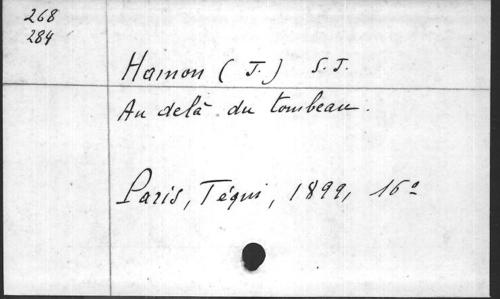 268
284
Hamon (J.) S.J.
Au delà du tombeau.
Paris, Téqui, 1899, 16º